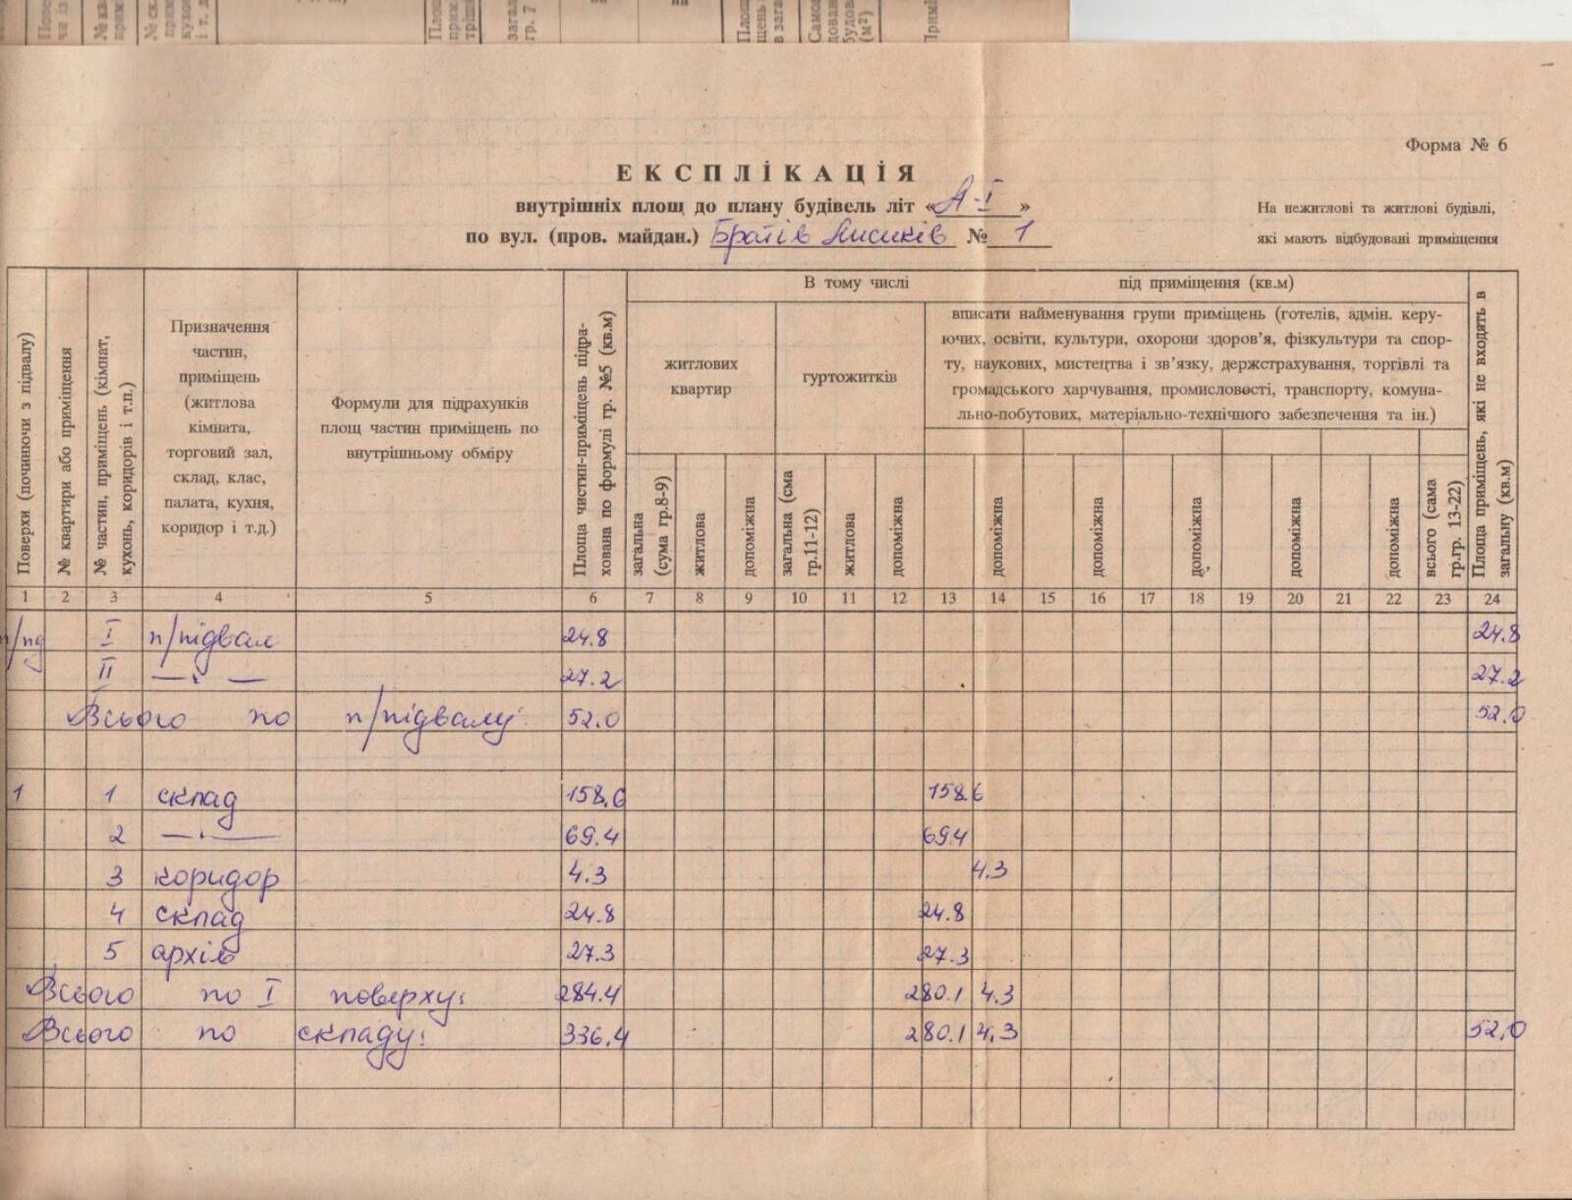 Форма № 6
ЕКСПЛІКАЦІЯ
внутрішніх площ до плану будівель літ «А-І»
по вул. (пров. майдан.) Братів Лисиків № 1
На нежитлові та житлові будівлі,
які мають відбудовані приміщення
Поверхи (починючи з підвалу)
№ квартири або приміщення
№ частин, приміщень (кімнат,
кухонь, коридорів і т.п.)
Призначення
частин,
приміщень
(житлова
кімната,
торговий зал,
склад, клас,
палата, кухня,
коридор і т.д.)
Формули для підрахунків
площ частин приміщень по
внутрішньому обміру
Площа чистин-приміщень підра-
хована по формулі гр. №5 (кв.м)
В тому числі під приміщення (кв.м)
житлових
квартир
гуртожитків
вписати найменування групи приміщень (готелів, адмін. керу-
ючих, освіти, культури, охорони здоров’я, фізкультури та спор-
ту, наукових, мистецтва і зв’язку, держстрахування, торгівлі та
громадського харчування, промисловості, транспорту, комуна-
льно-побутових, матеріально-технічного забезпечення та ін.)
загальна
(сума гр.8-9)
житлова
допоміжна
загальна (сма
гр.11-12)
житлова
допоміжна
допоміжна
допоміжна
допоміжна
допоміжна
допоміжна
всього (сама
гр.гр. 13-22)
Площа приміщень, які не входять в
загальну (кв.м)
1 2 3 4 5 6 7 8 9 10 11 12 13 14 15 16 17 18 19 20 21 22 23 24
п/пд I п/підвал 24.8 24.8
II —„— 27.2 27.2
Всього по п/підвалу: 52.0 52.0
1 1 склад 158.6 158.6
2 —„— 69.4 69.4
3 коридор 4.3 4.3
4 склад 24.8 24.8
5 архів 27.3 27.3
Всього по I поверху: 284.4 280.1 4.3
Всього по складу: 336.4 280.1 4.3 52.0